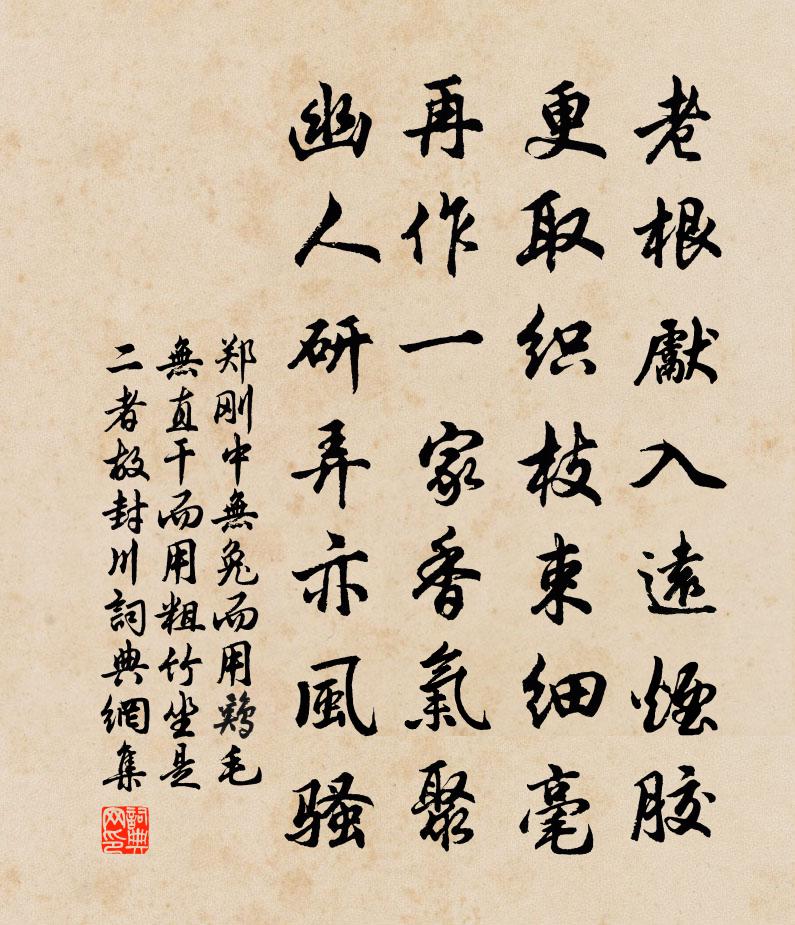 老根獻入遠煙膠
更取织枝束細毫
再作一家香氣聚
幽人研弄亦風騷
郑刚中無兔而用鷄毛
無直干而用粗竹坐是
二者故封川詞典網集
詞典网印